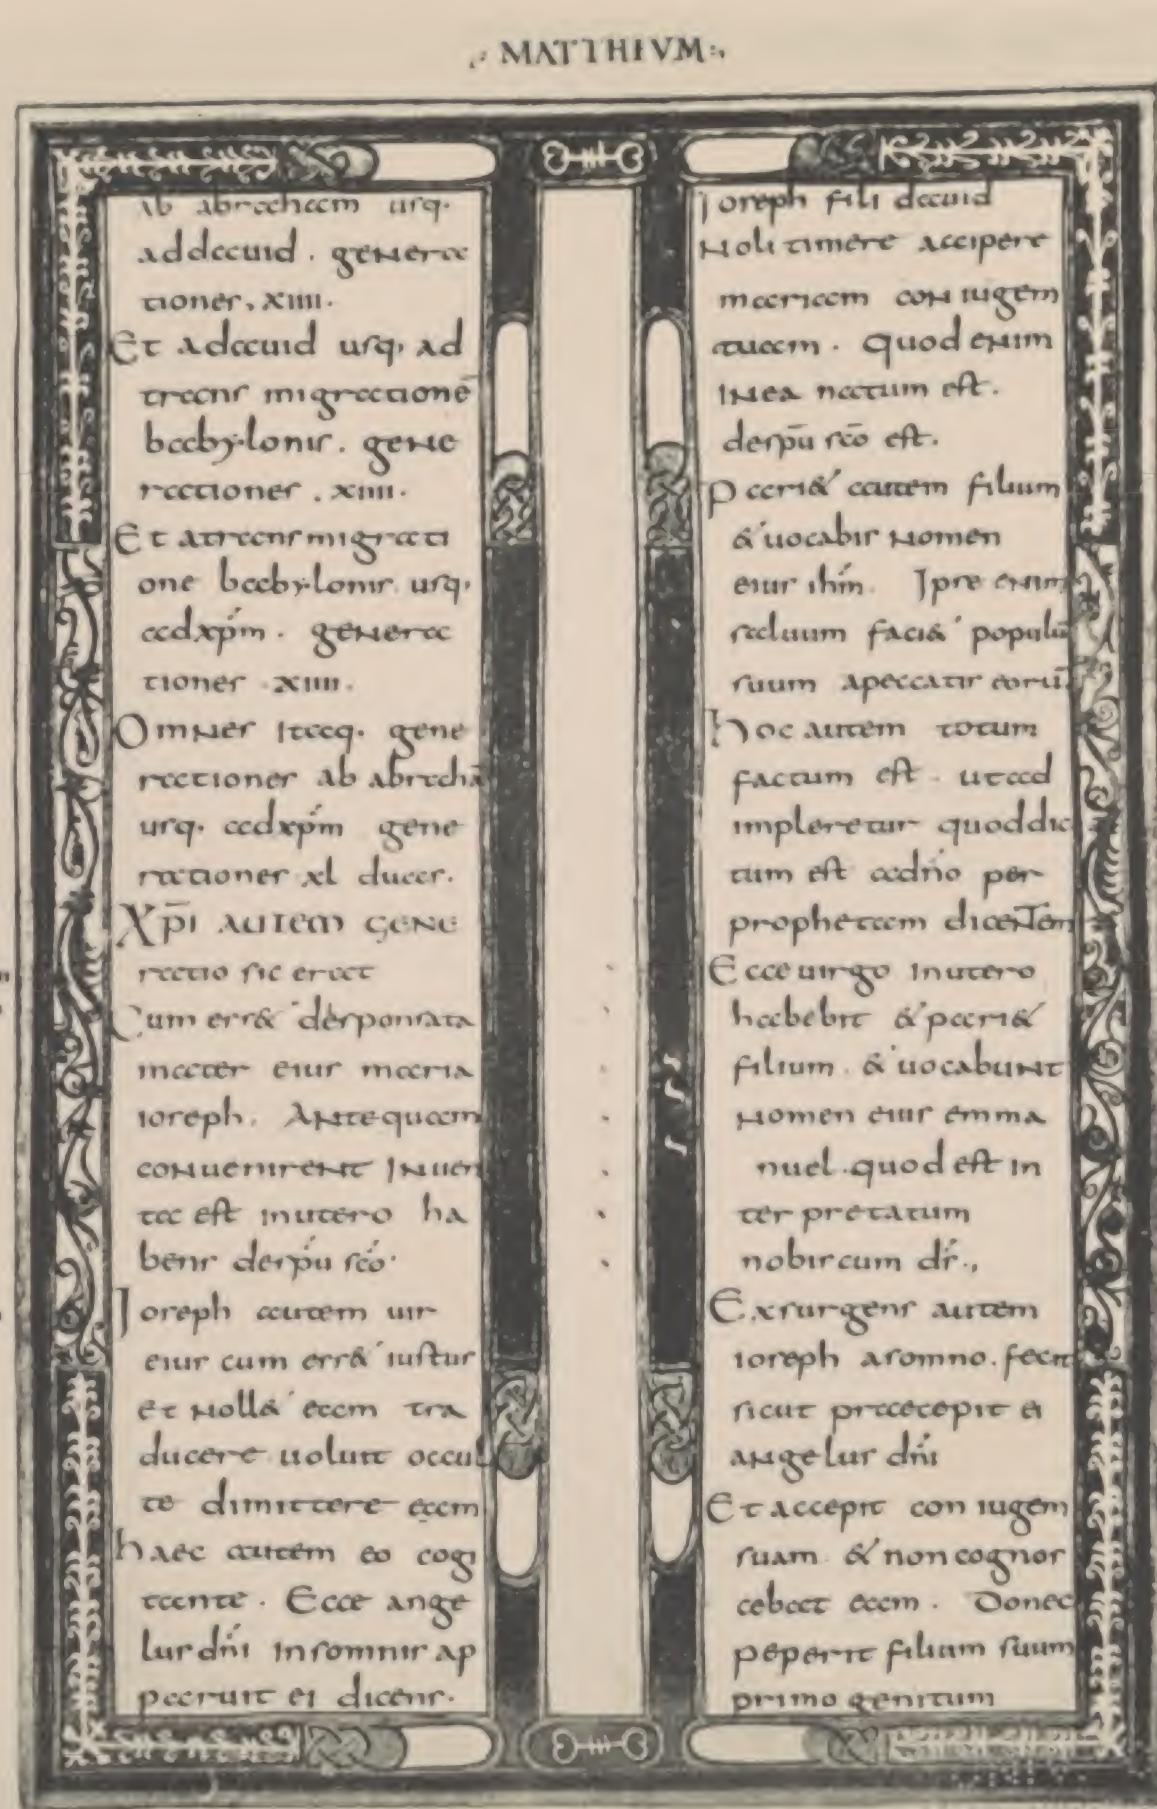 MATTHEVM
ab abraham usq.
addauid. genera
tiones. xiiii.
Et adauid usq. ad
trans migrationē
babylonis. gene
rationes. xiiii.
Et atrans migrati
one babylonis. usq.
adxp̄m. genera
tiones xiiii.
Omnes itaq. gene
rationes ab abrahā
usq. adxp̄m gene
rationes xl duas.
Xp̄i autem gene
ratio sic erat
Cum ess& desponsata
mater eius maria
ioseph. Antequam
conuenirent inuen
ta est inutero ha
bens despū scō.
Ioseph autem uir
eius cum ess& iustus
et noll& eam tra
ducere uoluit occul
te dimittere eam
haec autem eo cogi
tante. Ecce ange
lus dn̄i insomnis ap
paruit ei dicens.
Ioseph fili dauid
Noli timere accipere
mariam coniugem
tuam. Quod enim
inea natum est.
despū scō est.
Pari& autem filium
& uocabis nomen
eius ihm̄. Ipse enim
saluum faci& populū
suum apeccatis eorū.
hoc autem totum
factum est. utad
impleretur quoddic
tum est adn̄o per
prophetam dicentem
Ecce uirgo inutero
habebit & pari&
filium. & uocabunt
nomen eius emma
nuel. quod est in
ter pretatum
nobiscum dr̄.,
Exsurgens autem
ioseph asomno. fecit
sicut praecepit ei
angelus dn̄i
Et accepit con iugem
suam. & non cognos
cebat eam. Donec
peperit filium suum
primo genitum